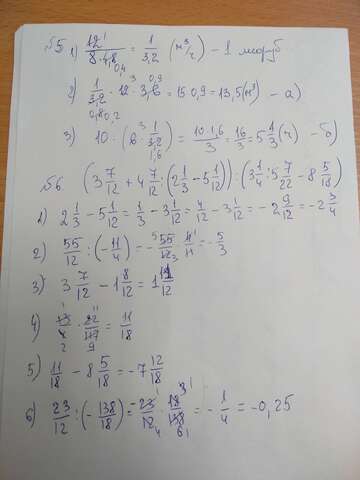 №5 1) 12/(8·4,8) = 1/3,2 (м³/ч) – 1 мотор
2) 1/3,2 · 12 · 3,6 = 15·0,9 = 13,5 (м³) – а)
3) 10 : (6 · 1/3,2) = 10·1,6/3 = 16/3 = 5 1/3 (ч) – б)
№6 (3 7/12 + 4 7/12 : (2 1/3 – 5 1/12)) : (3 1/4 : 5 7/22 – 8 5/18)
1) 2 1/3 – 5 1/12 = 1/3 – 3 1/12 = 4/12 – 3 1/12 = – 2 9/12 = – 2 3/4
2) 55/12 : (– 11/4) = – 55/12 · 4/11 = – 5/3
3) 3 7/12 – 1 8/12 = 1 11/12
4) 13/4 · 22/117 = 11/18
5) 11/18 – 8 5/18 = – 7 12/18
6) 23/12 : (– 138/18) = – 23/12 · 18/138 = – 1/4 = – 0,25